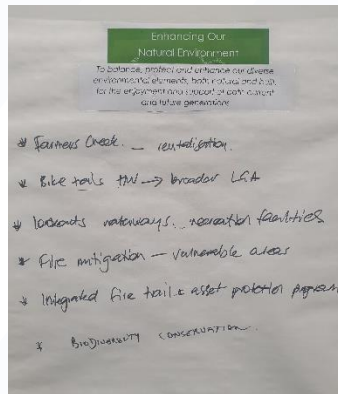 Enhancing Our
Natural Environment
To balance, protect and enhance our diverse
environmental elements, both natural and built,
for the enjoyment and support of both current
and future generations
* Farmers Creek. - revitalisation.
* Bike trails → broader LGA
* lookouts waterways.. recreation facilities
* Fire mitigation - vulnerable areas
* Integrated fire trail & asset protection program
* BIODIVERSITY CONSERVATION.